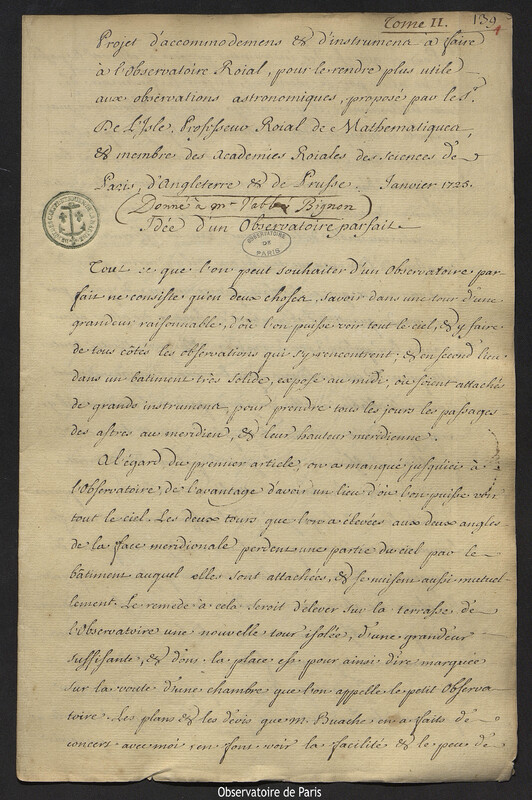 Tome II. 139
Projet d'accommodemens & d'instrumens a faire
à l'Observatoire Roial, pour le rendre plus utile
aux observations astronomiques, proposé par le Sr.
De L'Isle, Professeur Roial de Mathematiques,
& membre des Academies Roiales des sciences de
Paris, d'Angleterre & de Prusse. Janvier 1725.
(Donné à Mr l'abbé Bignon)
Idée d'un Observatoire parfait.
OBSERVATOIRE DE PARIS
Tout ce que l'on peut souhaiter d'un Observatoire par-
fait ne consiste qu'en deux choses. savoir dans une tour d'une
grandeur raisonnable, d'où l'on puisse voir tout le ciel, & y faire
de tous côtés les observations qui s'y rencontrent; & en second lieu
dans un batiment très solide, exposé au midi, où soient attachés
de grands instrumens, pour prendre tous les jours les passages
des astres au meridien, & leur hauteur meridienne.
A l'égard du premier article, on a manqué jusqu'ici à
l'Observatoire, de l'avantage d'avoir un lieu d'où l'on puisse voir
tout le ciel. Les deux tours que l'on a élevées aux deux angles
de la face meridionale perdent une partie du ciel par le
bâtiment auquel elles sont attachées, & se nuisent aussi mutuel-
lement. Le remede à cela seroit d'élever sur la terrasse de
l'Observatoire une nouvelle tour isolée, d'une grandeur
suffisante, & dont la place est pour ainsi dire marquée
sur la voute d'une chambre que l'on appelle le petit Observa-
toire. Les plans & les devis que M. Buache en a faits de
concert avec moi en font voir la facilité & le peu de
Observatoire de Paris